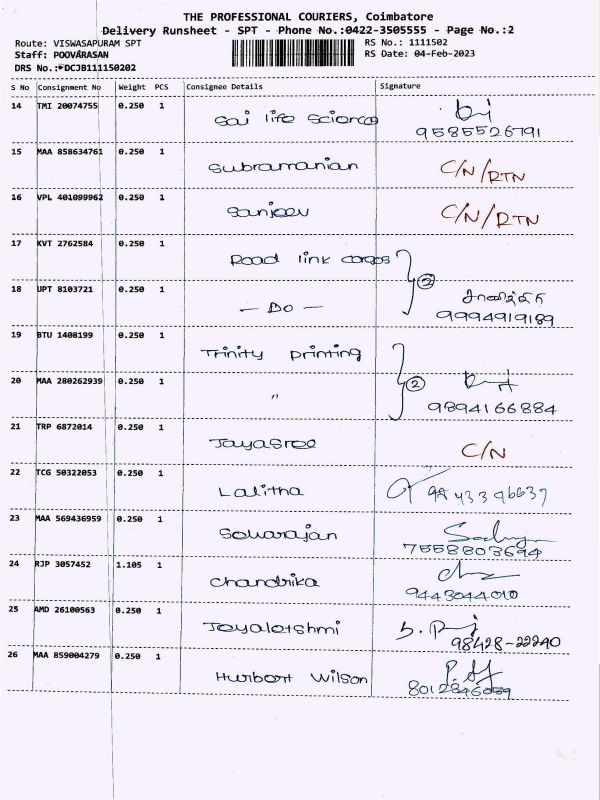 THE PROFESSIONAL COURIERS, Coimbatore
Delivery Runsheet - SPT - Phone No.:0422-3505555 - Page No.:2
Route: VISWASAPURAM SPT RS No.: 1111502
Staff: POOVARASAN RS Date: 04-Feb-2023
DRS No.:*DCJB111150202
S No Consignment No Weight PCS Consignee Details Signature
14 TMI 20074755 0.250 1 Sai life Science
9585526791
15 MAA 858634761 0.250 1 Subramanian C/N/RTN
16 VPL 401099962 0.250 1 Sanjeev C/N/RTN
17 KVT 2762584 0.250 1 Road link cargos
2
18 UPT 8103721 0.250 1 - Do -
9994919189
19 BTU 1408199 0.250 1 Trinity printing
2
20 MAA 280262939 0.250 1 "
9894166884
21 TRP 6872014 0.250 1 Jayasree C/N
22 TCG 50322053 0.250 1 Lalitha
23 MAA 569436959 0.250 1
7558803694
24 RJP 3057452 1.105 1 Chandrika
9443044010
25 AMD 26100563 0.250 1
98428-22240
26 MAA 859004279 0.250 1 Hurbort Wilson